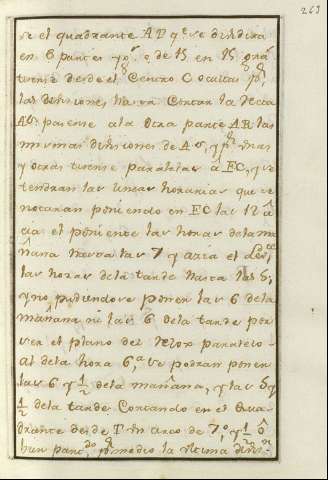 263
se el quadrante AP q.e se dividira
en 6 partes y p.r q de 15 en 15 gra
tirense desde el Centro C ocultas p.r
las divisiones hasta Cortar la recta
AO: pasense ala Otra parte AR las
mismas divisiones de AO, y p.r unas
y otras tirense paralelas â EC, q.e
tendran las lineas horarias que se
notaran poniendo en EC las 12 â
cia el poniente las horas dela ma
ñana hasta las 7 y azia el Lev.te
las horas dela tarde hasta las 5;
y no pudiendose poner las 6 dela
mañana ni las 6 dela tarde por
ser el plano del relox paralelo
al dela hora 6,a se podran poner
las 6 y ½ dela mañana, y las 5 y
½ dela tarde Contando en el Qua
drante desde P un arco de 7,o y ½ ô
bien parti.do p.r medio la ultima divi-